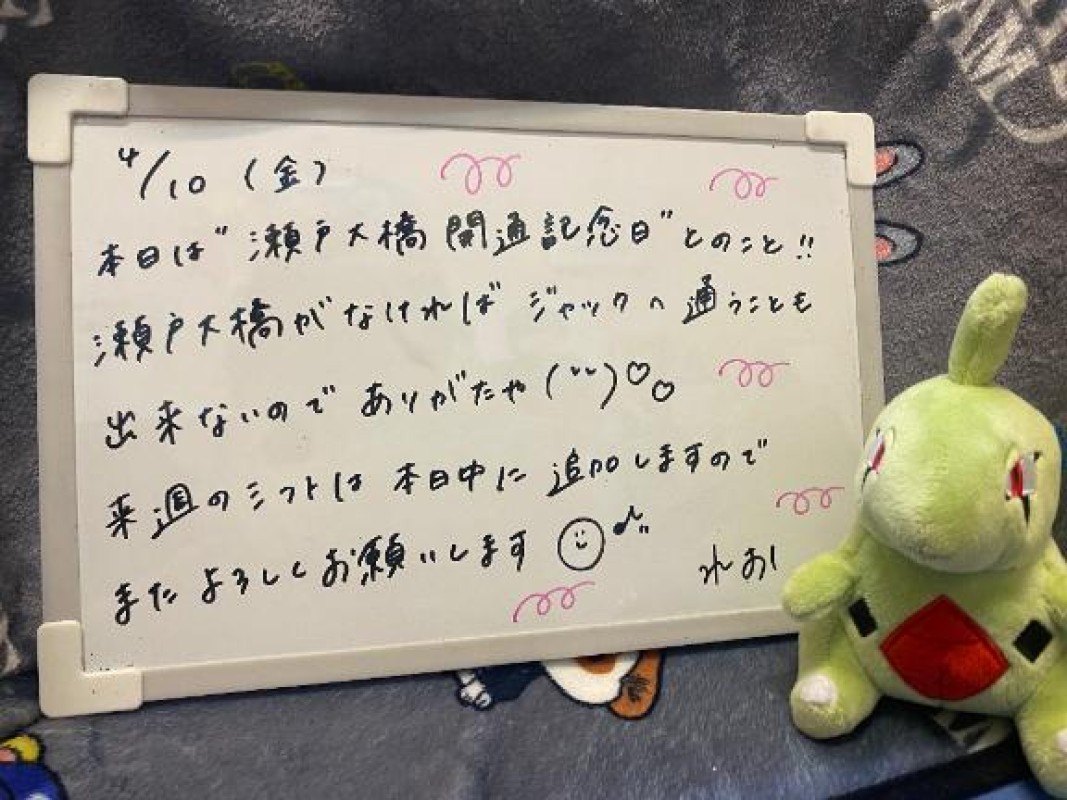 4/10 (金)
本日は"瀬戸大橋開通記念日"とのこと!!
瀬戸大橋がなければジャックへ通うことも
出来ないのでありがたや(˘˘)♡♡
来週のシフトは本日中に追加しますので
またよろしくお願いします☺♪"
れおん